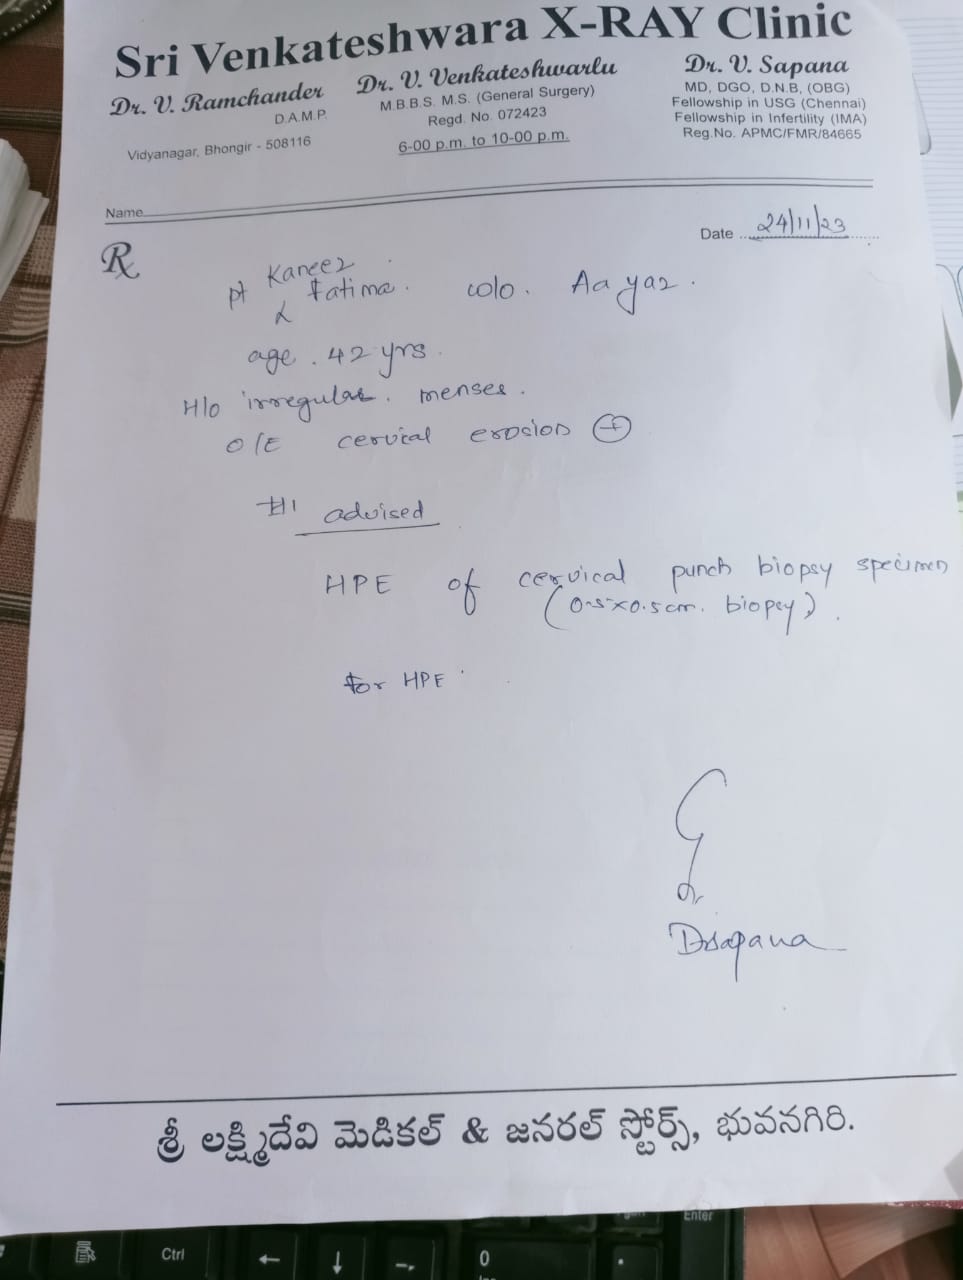 Sri Venkateshwara X-RAY Clinic
Dr. V. Ramchander
D.A.M.P.
Vidyanagar, Bhongir - 508116
Dr. V. Venkateshwarlu
M.B.B.S. M.S. (General Surgery)
Regd. No. 072423
6-00 p.m. to 10-00 p.m.
Dr. V. Sapana
MD, DGO, D.N.B, (OBG)
Fellowship in USG (Chennai)
Fellowship in Infertility (IMA)
Reg.No. APMC/FMR/84665
Name
Date 24/11/23
Rx
pt Kaneez Fatima. w/o. Aayaz.
age. 42 yrs.
H/o irregular. menses.
O/E cervical erosion +
advised
HPE of cervical punch biopsy specimen
(0.5x0.5cm. biopsy).
for HPE
Dr
Dr Sapana
శ్రీ లక్ష్మిదేవి మెడికల్ & జనరల్ స్టోర్స్, భువనగిరి.
Ctrl
←
↓
0
.
Enter